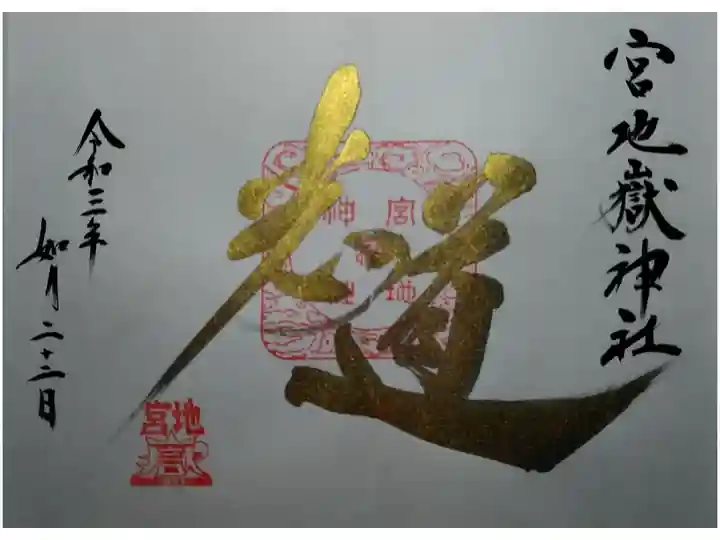 宮地嶽神社
光の道
宮地
神社
令和三年
如月二十二日
宮地